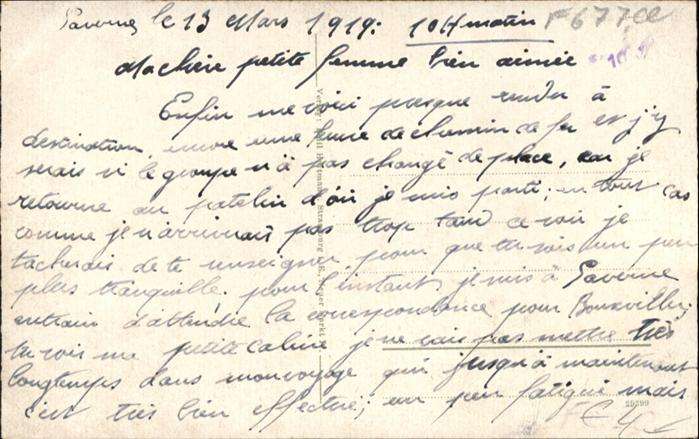 Saverne le 13 Mars 1919: 10H matin
F677CC
Ma chère petite femme bien aimée
Enfin me voici presque rendu à
destination, encore une heure de chemin de fer et j'y
serais si le groupe n'à pas changé de place, car je
retourne au patelin d'où je suis parti; en tout cas
comme je n'arriverait pas trop tard ce soir je
tacherais de te renseigner pour que tu sois un peu
plus tranquille. pour l'instant je suis à Saverne
entrain d'attendre la correspondance pour Bouxviller,
tu vois ma petite caline je ne vais pas mettre très
longtemps dans mon voyage qui jusqu'à maintenant
c'est très bien effectué; un peu fatigué mais
25299